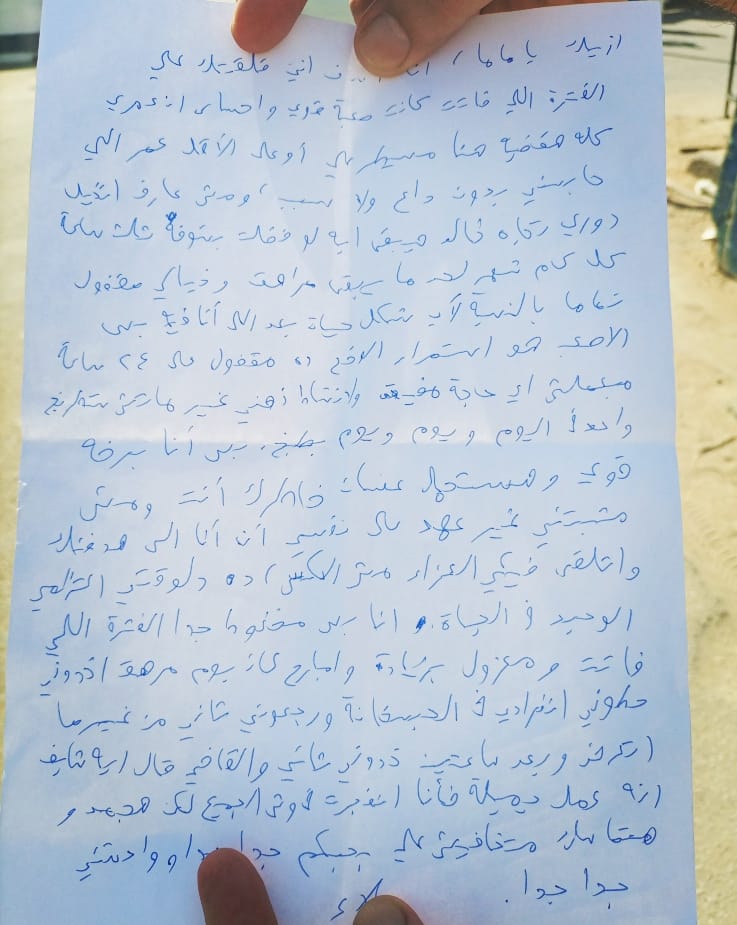 ازيك يا ماما، أنا اني قلقتك علي
الفترة اللي فاتت كانت صعبة قوي واحساس ان عمري
كله هقضيه هنا مسيطر علي أو على الأقل عمر اللي
حابسني بدون داع ولا سبب، ومش عارف اتخيل
دوري تجاه خالد هيبقى ايه لو فضلت بشوفه تلت ساعة
كل كام شهر لحد ما يبقى مراهق وخيالي مقفول
تماما بالنسبة لأي شكل حياة بعد اللي أنا فيه بس
الاصعب هو استمرار الوضع ده مقفول على ٢٤ ساعة
مبعملش اي حاجة مفيدة ولا انتباه ذهني غير ماتش شطرنج
واحد في اليوم ويوم ويوم بطبخ. بس أنا برضه
قوي وهستحمل عشان خاطرك أنت ومش
مثبتني غير عهد على نفسي أن أنا اللي هدفنك
واتلقى فيكي العزاء مش العكس) ده دلوقتي التزامي
الوحيد في الحياة. انا بس مضغوط جدا الفترة اللي
فاتت ومعزول بزيادة وامبارح كان يوم مرهق اخدوني
حطوني انفرادي في الحبسخانة ورجعوني تاني من غير ما
اتعرض وبعد ساعتين خدوني تاني والقاضي قال ايه شايف
انه عمل جميلة فأنا انفجرت في وش الجميع لكن هجمد و
هتماسك متخافيش علي بحبكم جدا جدا وواحشني
جدا جدا.
علاء